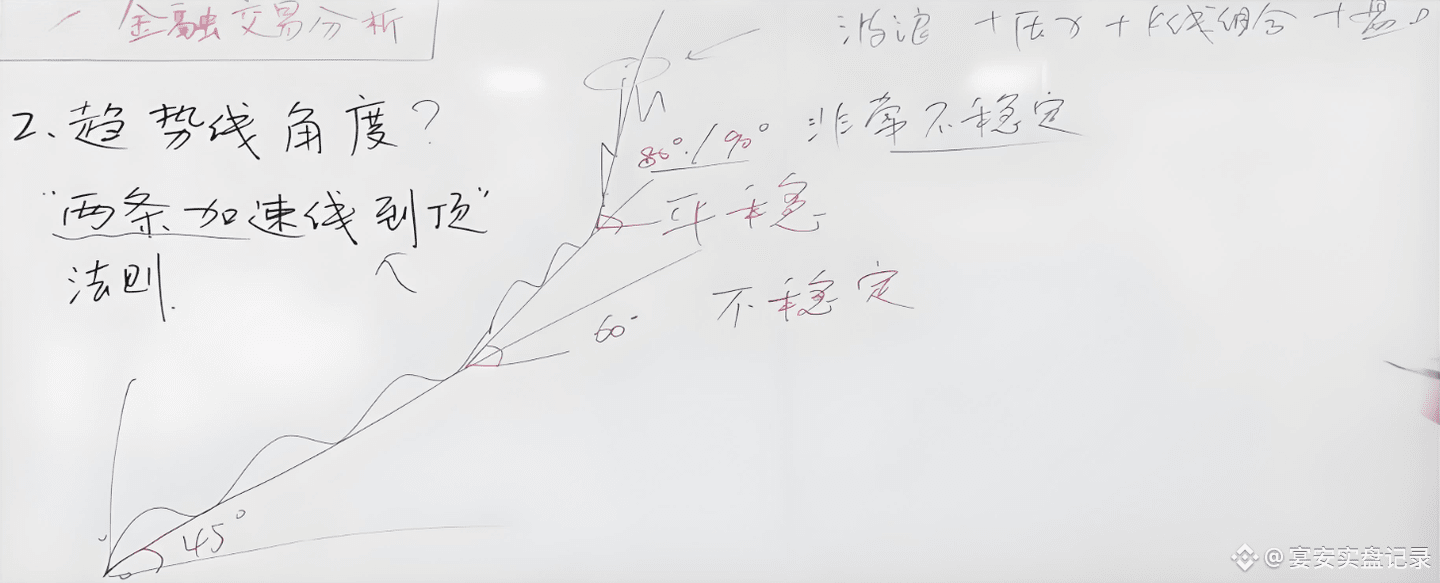 金融交易分析
波浪 + 压力 + K线组合 + 量
2、趋势线角度?
80°/90° 非常不稳定
"两条加速线到顶"
平稳
法则.
60° 不稳定
45°
@宴安实盘记录